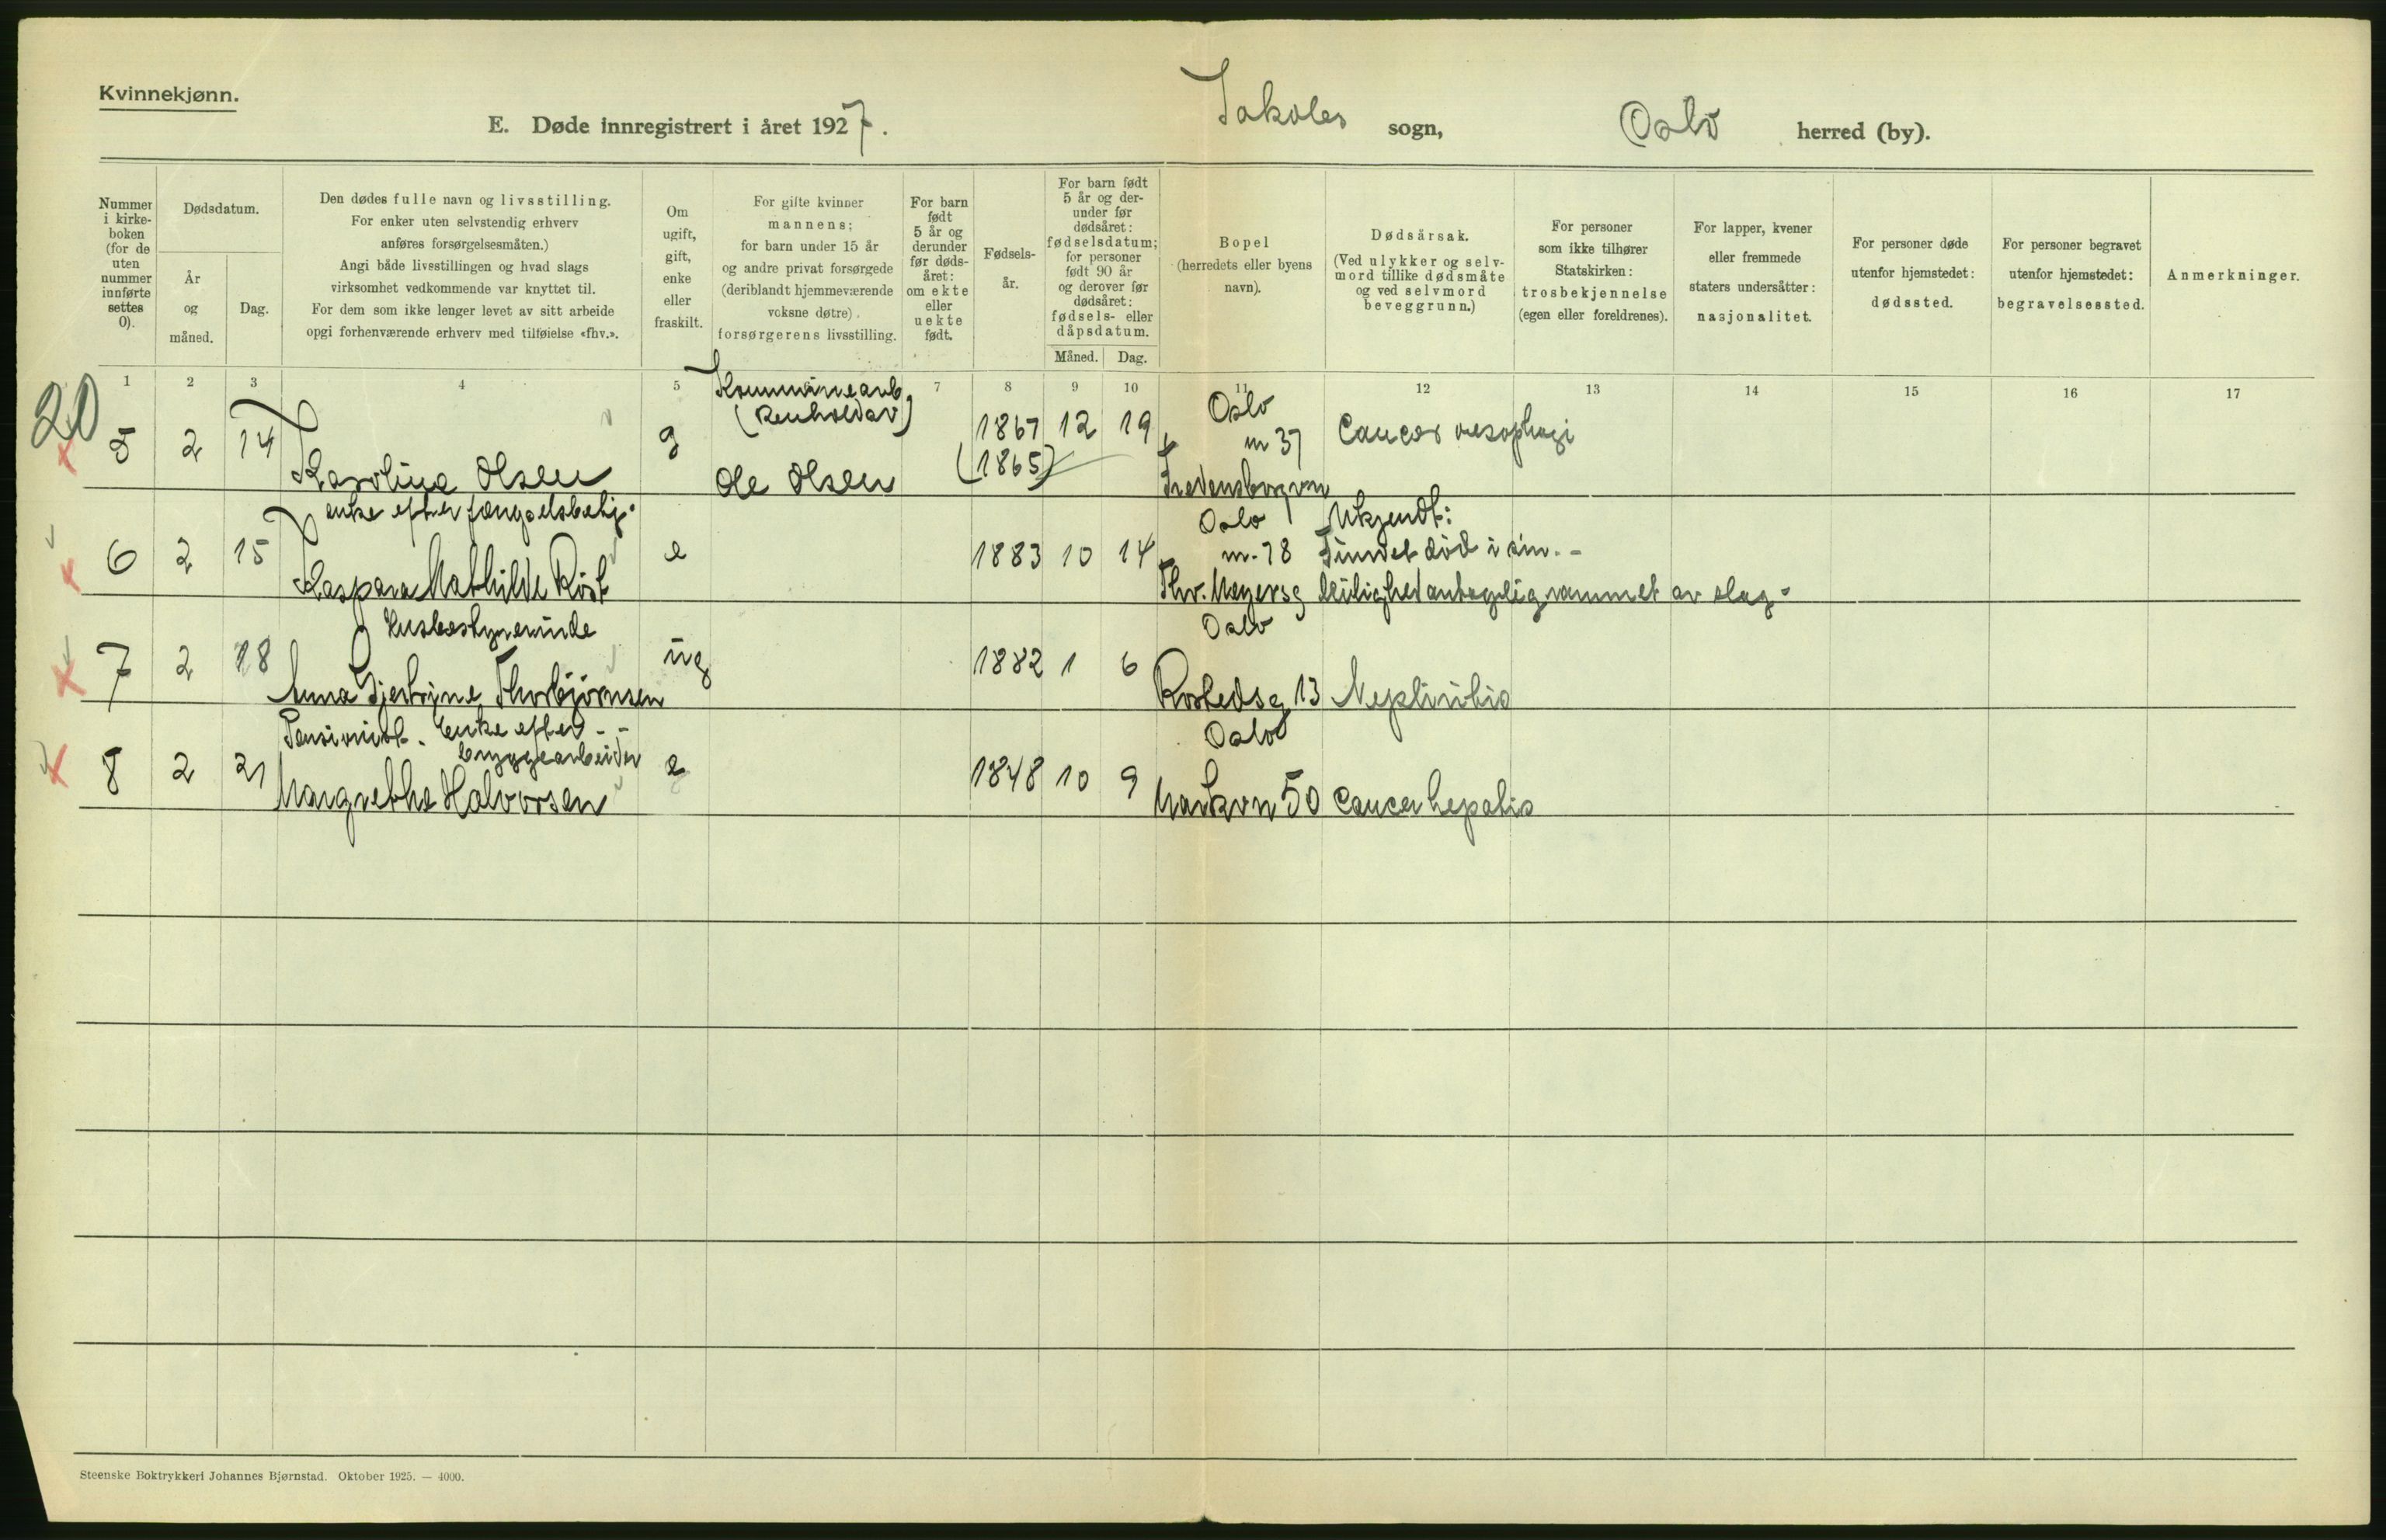 Kvinnekjønn.
E. Døde innregistrert i året 1927. Jakobs sogn, Oslo herred (by).
Nummer i kirke-boken (for de uten nummer innførte settes 0).
Dødsdatum.
År og måned.
Dag.
Den dødes fulle navn og livsstilling.
For enker uten selvstendig erhverv
anføres forsørgelsesmåten.)
Angi både livsstillingen og hvad slags
virksomhet vedkommende var knyttet til.
For dem som ikke lenger levet av sitt arbeide
opgi forhenværende erhverv med tilføielse «fhv.».
Om
ugift,
gift,
enke
eller
fraskilt.
For gifte kvinner
mannens;
for barn under 15 år
og andre privat forsørgede
(deriblandt hjemmeværende
voksne døtre)
forsørgerens livsstilling.
For barn
født
5 år og
derunder
før døds-
året:
om ekte
eller
uekte
født.
Fødsels-
år.
For barn født
5 år og der-
under før
dødsåret:
fødselsdatum;
for personer
født 90 år
og derover før
dødsåret:
fødsels- eller
dåpsdatum.
Måned. Dag.
Bopel
(herredets eller byens
navn).
Dødsårsak.
(Ved ulykker og selv-
mord tillike dødsmåte
og ved selvmord
beveggrunn.)
For personer
som ikke tilhører
Statskirken:
trosbekjennelse
(egen eller foreldrenes).
For lapper, kvener
eller fremmede
staters undersåtter:
nasjonalitet.
For personer døde
utenfor hjemstedet:
dødssted.
For personer begravet
utenfor hjemstedet:
begravelsessted.
Anmerkninger.
1 2 3 4 5 7 8 9 10 11 12 13 14 15 16 17
20
Kommunearb.
(Renholdsv)
Oslo
5 2 14 g 1867 12 19 m 37 Cancer oesophagi
Karoline Olsen Ole Olsen (1865) Fredensborgvn
enke efter fængselsbetj.
Oslo Ukjendt:
6 2 15 e 1883 10 14 nr. 78 Fundet død i sin. -
Kaspara Mathilde Röst Thv. Meyersg leilighet antagelig rammet av slag -
Husbestyrerinde Oslo
7 2 18 ug 1882 1 6
Anna Gjertrine Thorbjörnsen Rostedsg 13 Nephritis
Pensionist. Enke efter - -
bryggearbeider Oslo
8 2 21 e 1848 10 9
Margrethe Halvorsen Markvn 50 Cancer hepatis
Steenske Boktrykkeri Johannes Bjørnstad. Oktober 1925. — 4000.